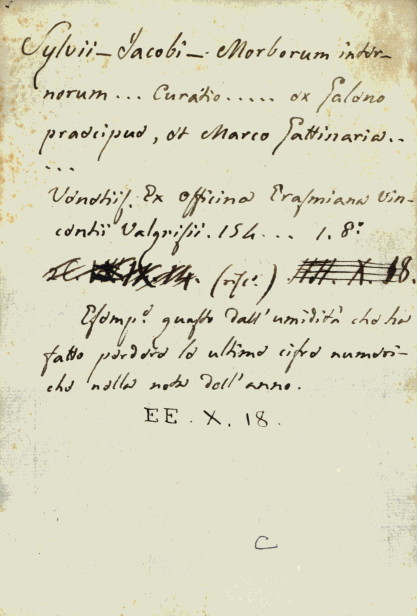 Sylvii - Jacobi - Morborum inter-
norum ... Curatio ..... ex Galeno
praecipue, et Marco Gattinaria ..
...
Venetiis. Ex Officina Erasmiana Vin-
centii Valgrisii. 154 ... 1. 8.°
(ris.°) X. 18.
Esemp.e guasto dall'umidità che ha
fatto perdere le ultime cifre numeri-
che nella nota dell'anno.
EE. X. 18.
C